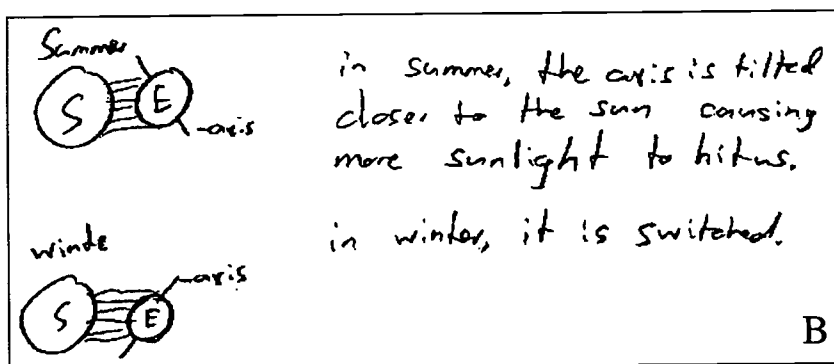 Summer
S
E
-axis
in summer, the axis is tilted
closer to the sun causing
more sunlight to hit us.
in winter, it is switched.
winte
-axis
S
E
B